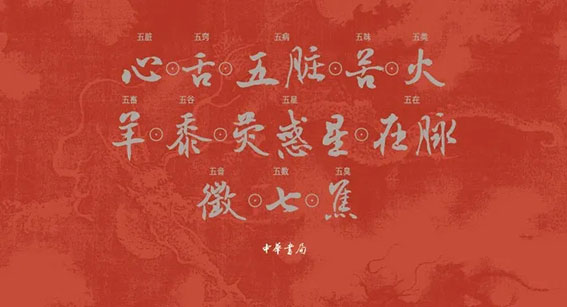 五脏 五窍 五病 五味 五类
心 舌 五脏 苦 火
五畜 五谷 五星 五在
羊 黍 荧惑星 在脉
五音 五数 五臭
徵 七 焦
中华书局